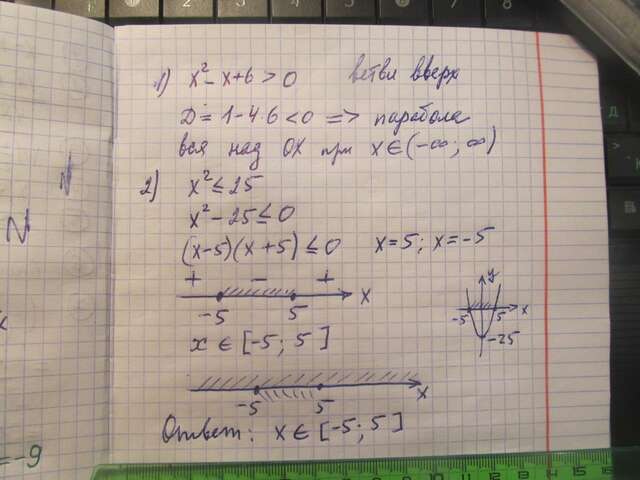 1) x² - x + 6 > 0 ветви вверх
D = 1 - 4·6 < 0 => парабола
вся над OX при x ∈ (-∞; ∞)
2) x² ≤ 25
x² - 25 ≤ 0
(x-5)(x+5) ≤ 0 x = 5; x = -5
+ - +
-5 5 x
y
-5 5 x
-25
x ∈ [-5; 5]
-5 5 x
Ответ: x ∈ [-5; 5]
=-9